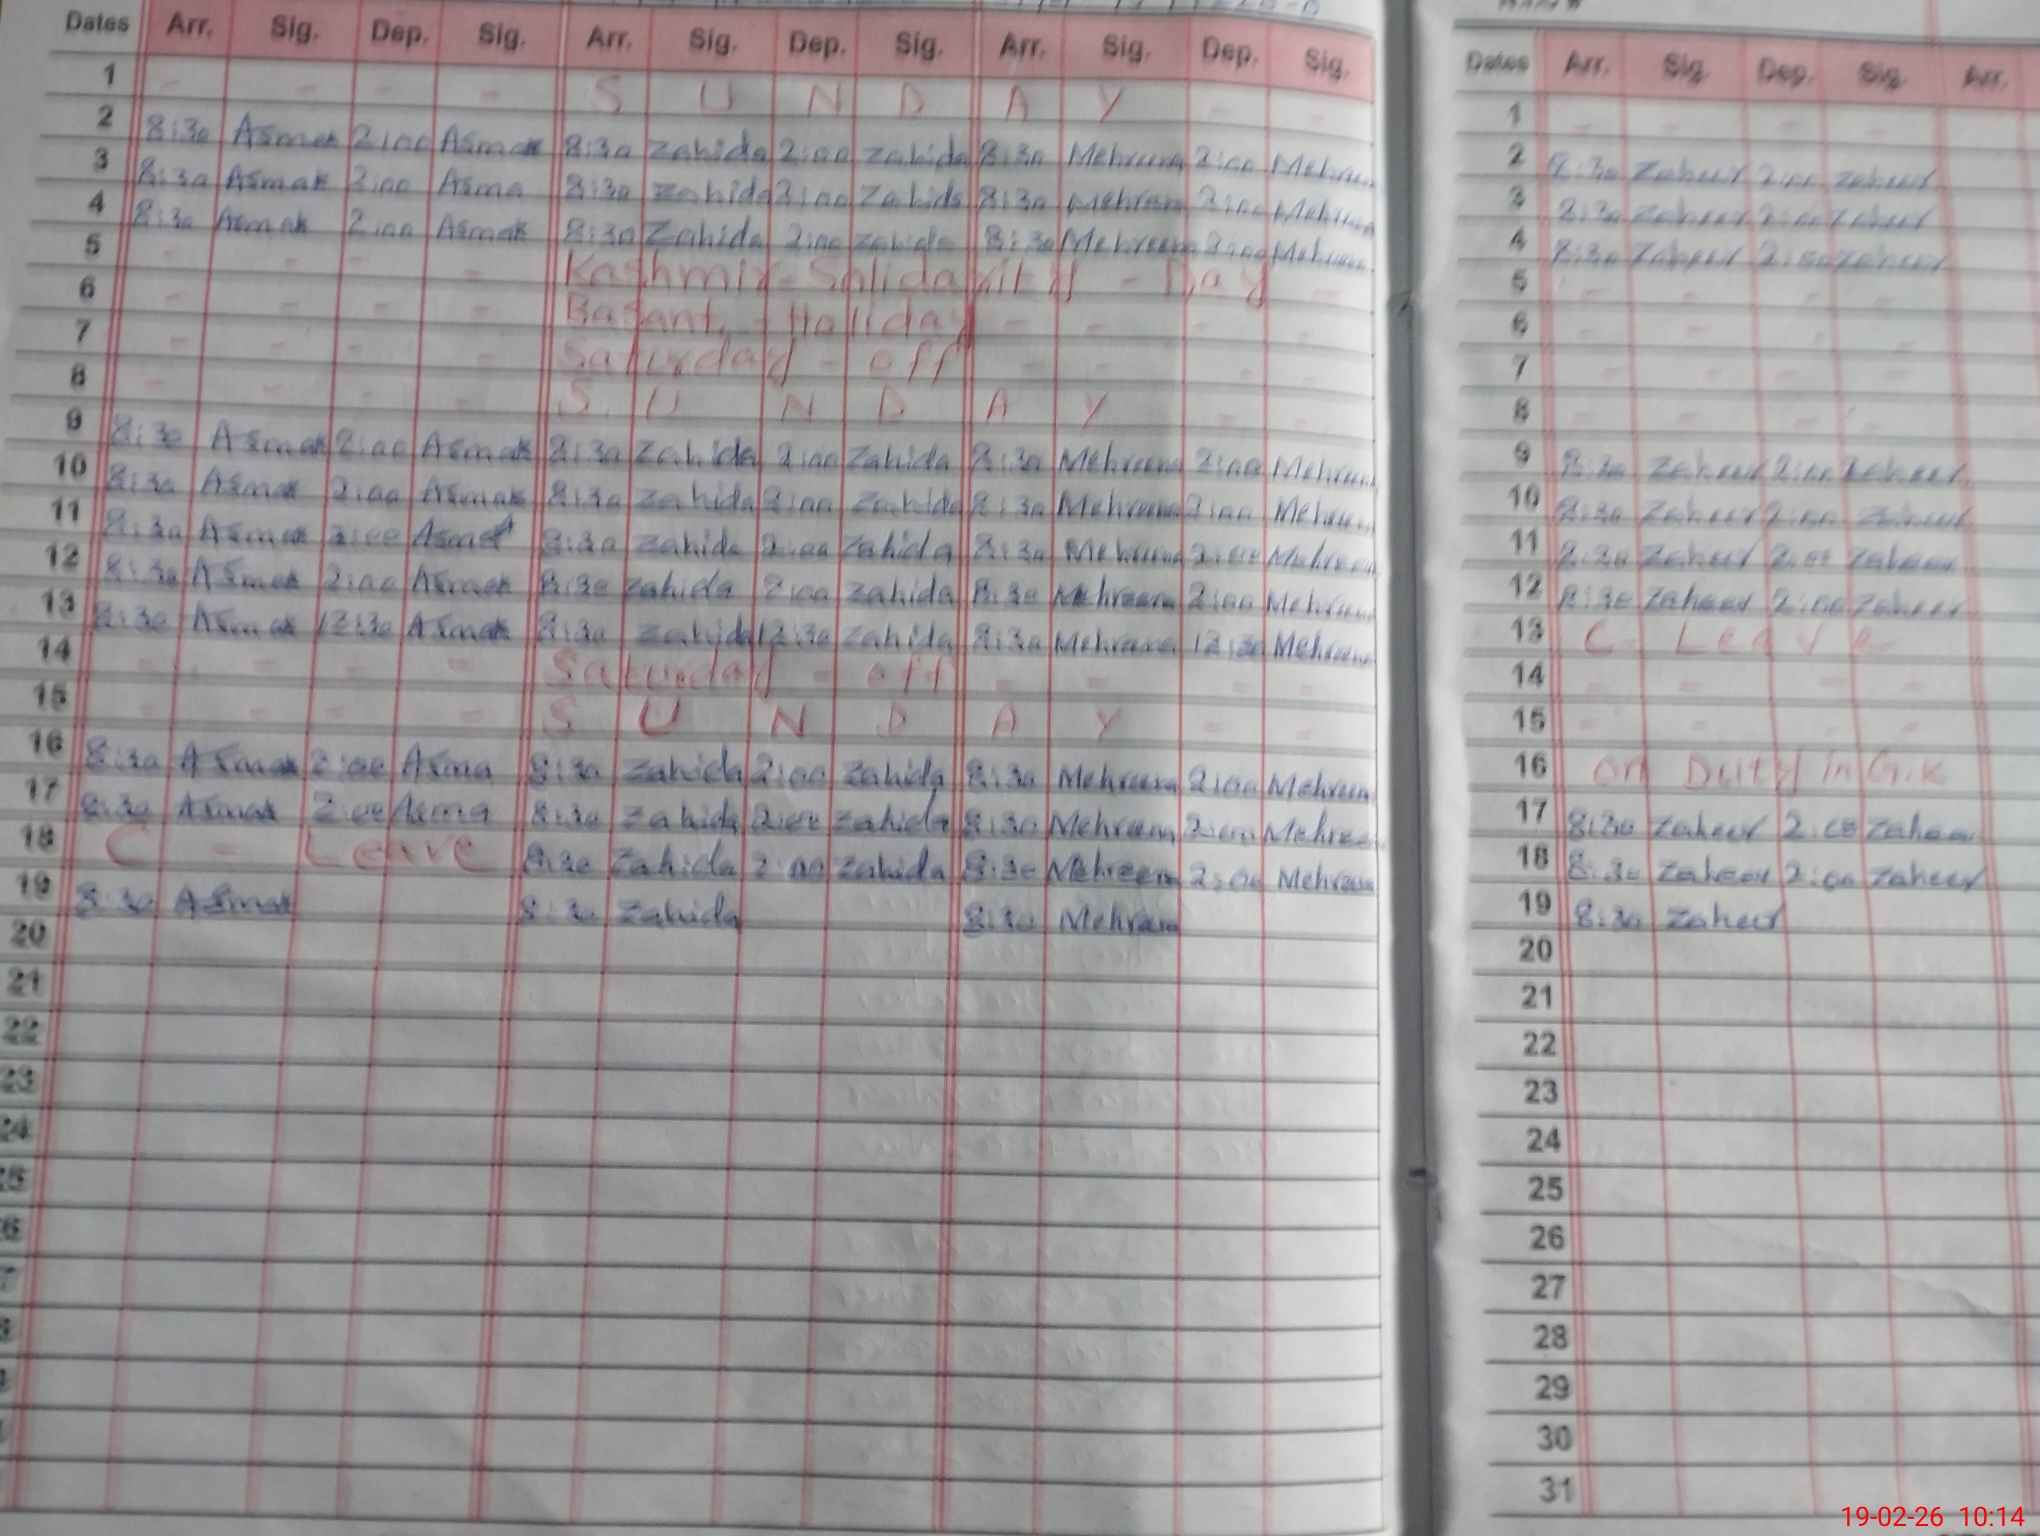 Dates Arr. Sig. Dep. Sig. Arr. Sig. Dep. Sig. Arr. Sig. Dep. Sig.
1 - - - - S U N D A Y - -
2 8:30 Asmat 2:00 Asmat 8:30 Zahida 2:00 Zahida 8:30 Mehreen 2:00 Mehreen
3 8:30 Asmat 2:00 Asma 8:30 Zahida 2:00 Zahida 8:30 Mehreen 2:00 Mehreen
4 8:30 Asmat 2:00 Asmat 8:30 Zahida 2:00 Zahida 8:30 Mehreen 2:00 Mehreen
5 - - - - Kashmir - Solidarity - Day -
6 - - - - Basant - Holiday - - - -
7 - - - - Saturday - off - - - -
8 - - - - S U N D A Y - -
9 8:30 Asmat 2:00 Asmat 8:30 Zahida 2:00 Zahida 8:30 Mehreen 2:00 Mehreen
10 8:30 Asmat 2:00 Asmat 8:30 Zahida 2:00 Zahida 8:30 Mehreen 2:00 Mehreen
11 8:30 Asmat 2:00 Asmat 8:30 Zahida 2:00 Zahida 8:30 Mehreen 2:00 Mehreen
12 8:30 Asmat 2:00 Asmat 8:30 Zahida 2:00 Zahida 8:30 Mehreen 2:00 Mehreen
13 8:30 Asmat 12:30 Asmat 8:30 Zahida 12:30 Zahida 8:30 Mehreen 12:30 Mehreen
14 - - - - Saturday - off - - - -
15 - - - - S U N D A Y - -
16 8:30 Asmat 2:00 Asma 8:30 Zahida 2:00 Zahida 8:30 Mehreen 2:00 Mehreen
17 8:30 Asmat 2:00 Asma 8:30 Zahida 2:00 Zahida 8:30 Mehreen 2:00 Mehreen
18 C - Leave 8:30 Zahida 2:00 Zahida 8:30 Mehreen 2:00 Mehreen
19 8:30 Asmat 8:30 Zahida 8:30 Mehreen
20
21
22
23
24
Dates Arr. Sig. Dep. Sig. Arr.
1 - - - -
2 8:30 Zaheer 2:00 Zaheer
3 8:30 Zaheer 2:00 Zaheer
4 8:30 Zaheer 2:00 Zaheer
5 - - - -
6 - - - -
7 - - - -
8 - - - -
9 8:30 Zaheer 2:00 Zaheer
10 8:30 Zaheer 2:00 Zaheer
11 8:30 Zaheer 2:00 Zaheer
12 8:30 Zaheer 2:00 Zaheer
13 C Leave
14 - - - -
15 - - - -
16 on Duty in G.K
17 8:30 Zaheer 2:00 Zaheer
18 8:30 Zaheer 2:00 Zaheer
19 8:30 Zaheer
20
21
22
23
24
25
26
27
28
29
30
31
19-02-26 10:14